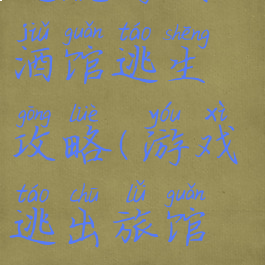 jiǔ guǎn táo shēng
酒馆逃生
gōng lüè yóu xì
攻略(游戏
táo chū lǚ guǎn
逃出旅馆